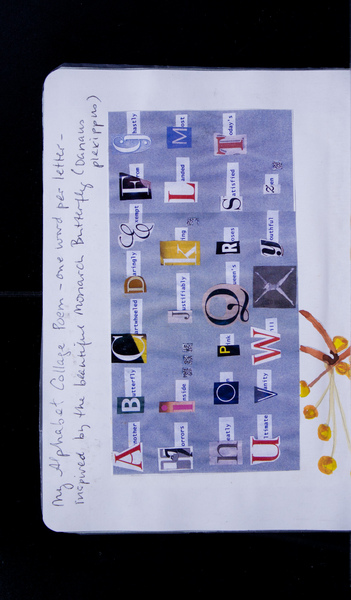 My Alphabet Collage Poem – one word per letter –
inspired by the beautiful Monarch Butterfly (Danaus
plexippus)
Another Butterfly Cartwheeled Daringly Exempt From Ghastly
Horrors Inside Justifiably King Landed Most
neatly On Pink Queen's Roses Satisfied Today's
Ultimate Vanity Will X youthful Zen